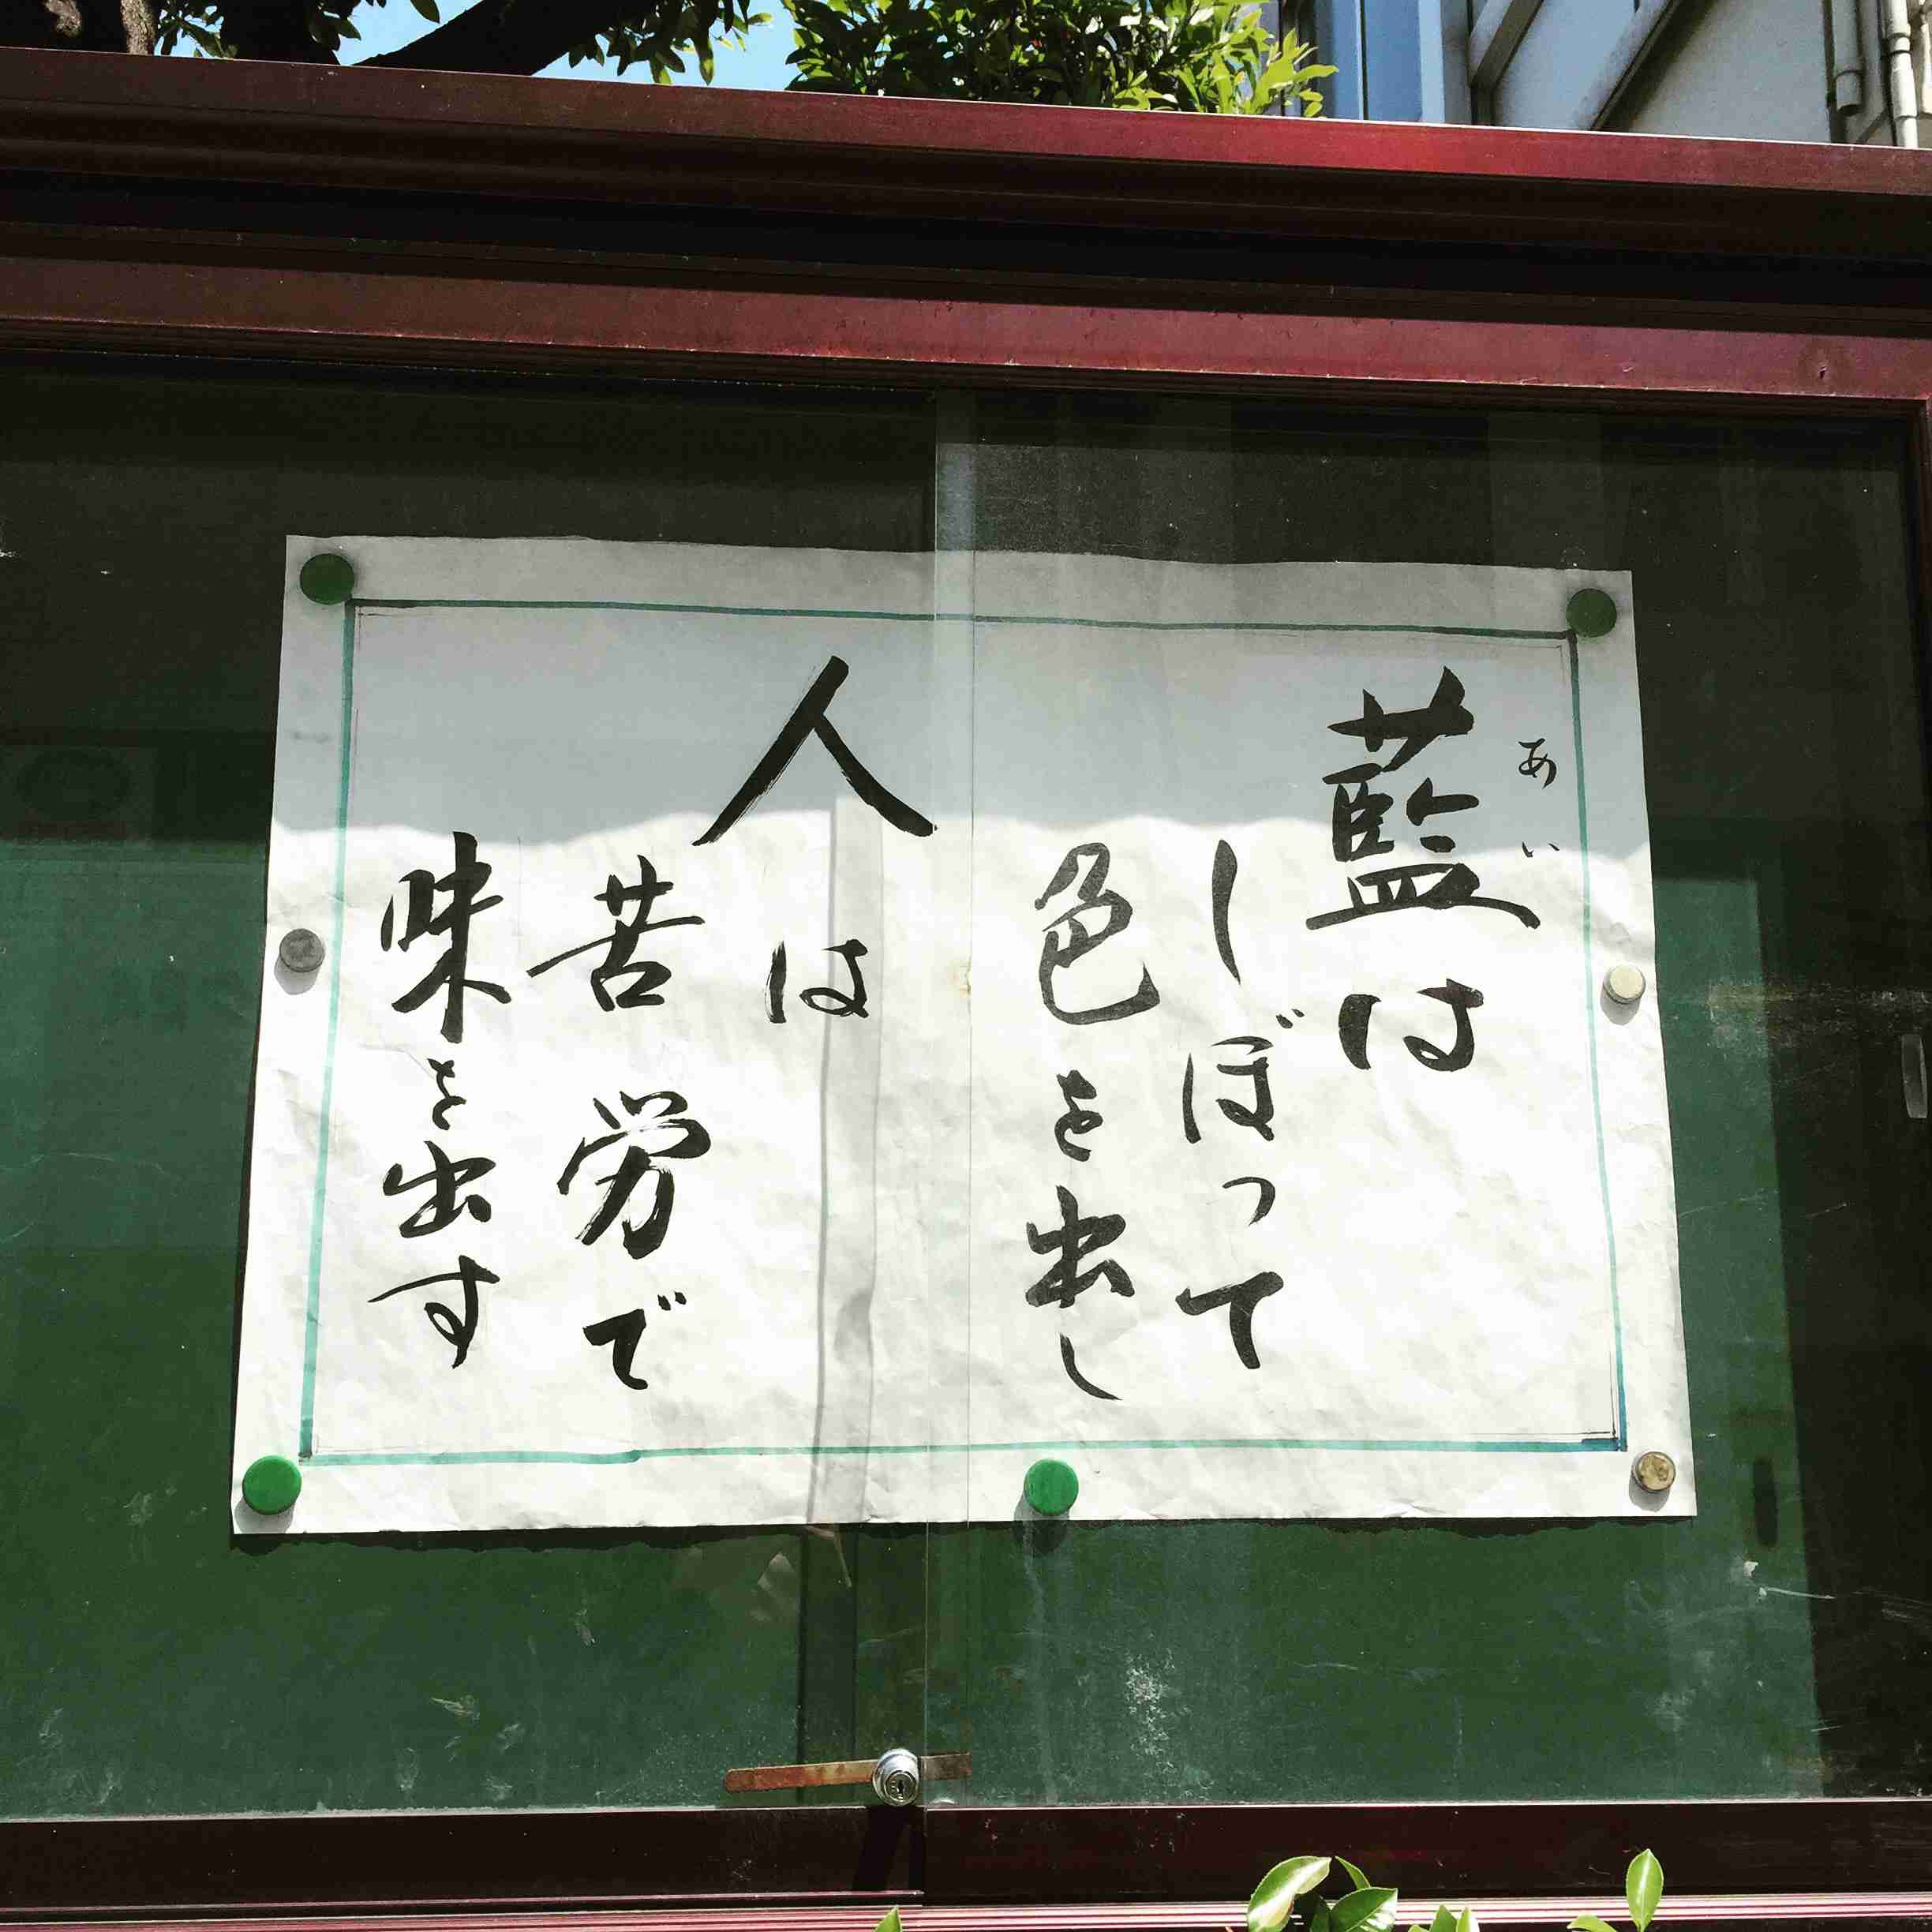 藍は
あい
しぼって
色を出し
人は
苦労で
味を出す